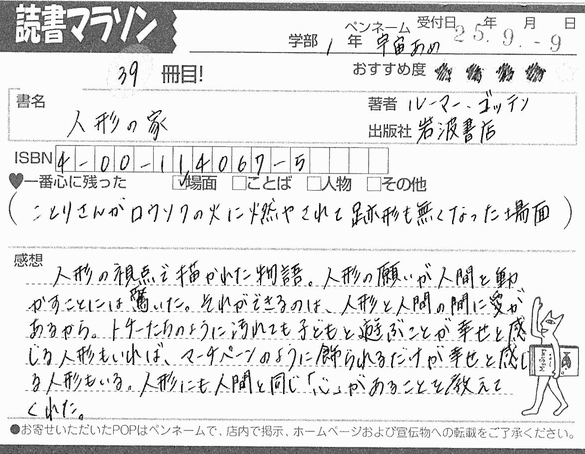 読書マラソン
39 冊目!
学部 1 年 ペンネーム 宇宙あめ 受付日 25.年9.月-9日
おすすめ度
書名 人形の家
著者 ルーマー・ゴッデン
出版社 岩波書店
ISBN 4-00-114067-5
♥一番心に残った ☑場面 □ことば □人物 □その他
(ことりさんがロウソクの火に燃やされて跡形も無くなった場面)
感想
人形の視点で描かれた物語。人形の願いが人間を動
かすことには驚いた。それができるのは、人形と人間の間に愛が
あるから。トチーたちのように汚れても子どもと遊ぶことが幸せと感
じる人形もいれば、マーチペーンのように飾られるだけが幸せと感じ
る人形もいる。人形にも人間と同じ「心」があることを教えて
くれた。
●お寄せいただいたPOPはペンネームで、店内で掲示、ホームページおよび宣伝物への転載をご了承ください。